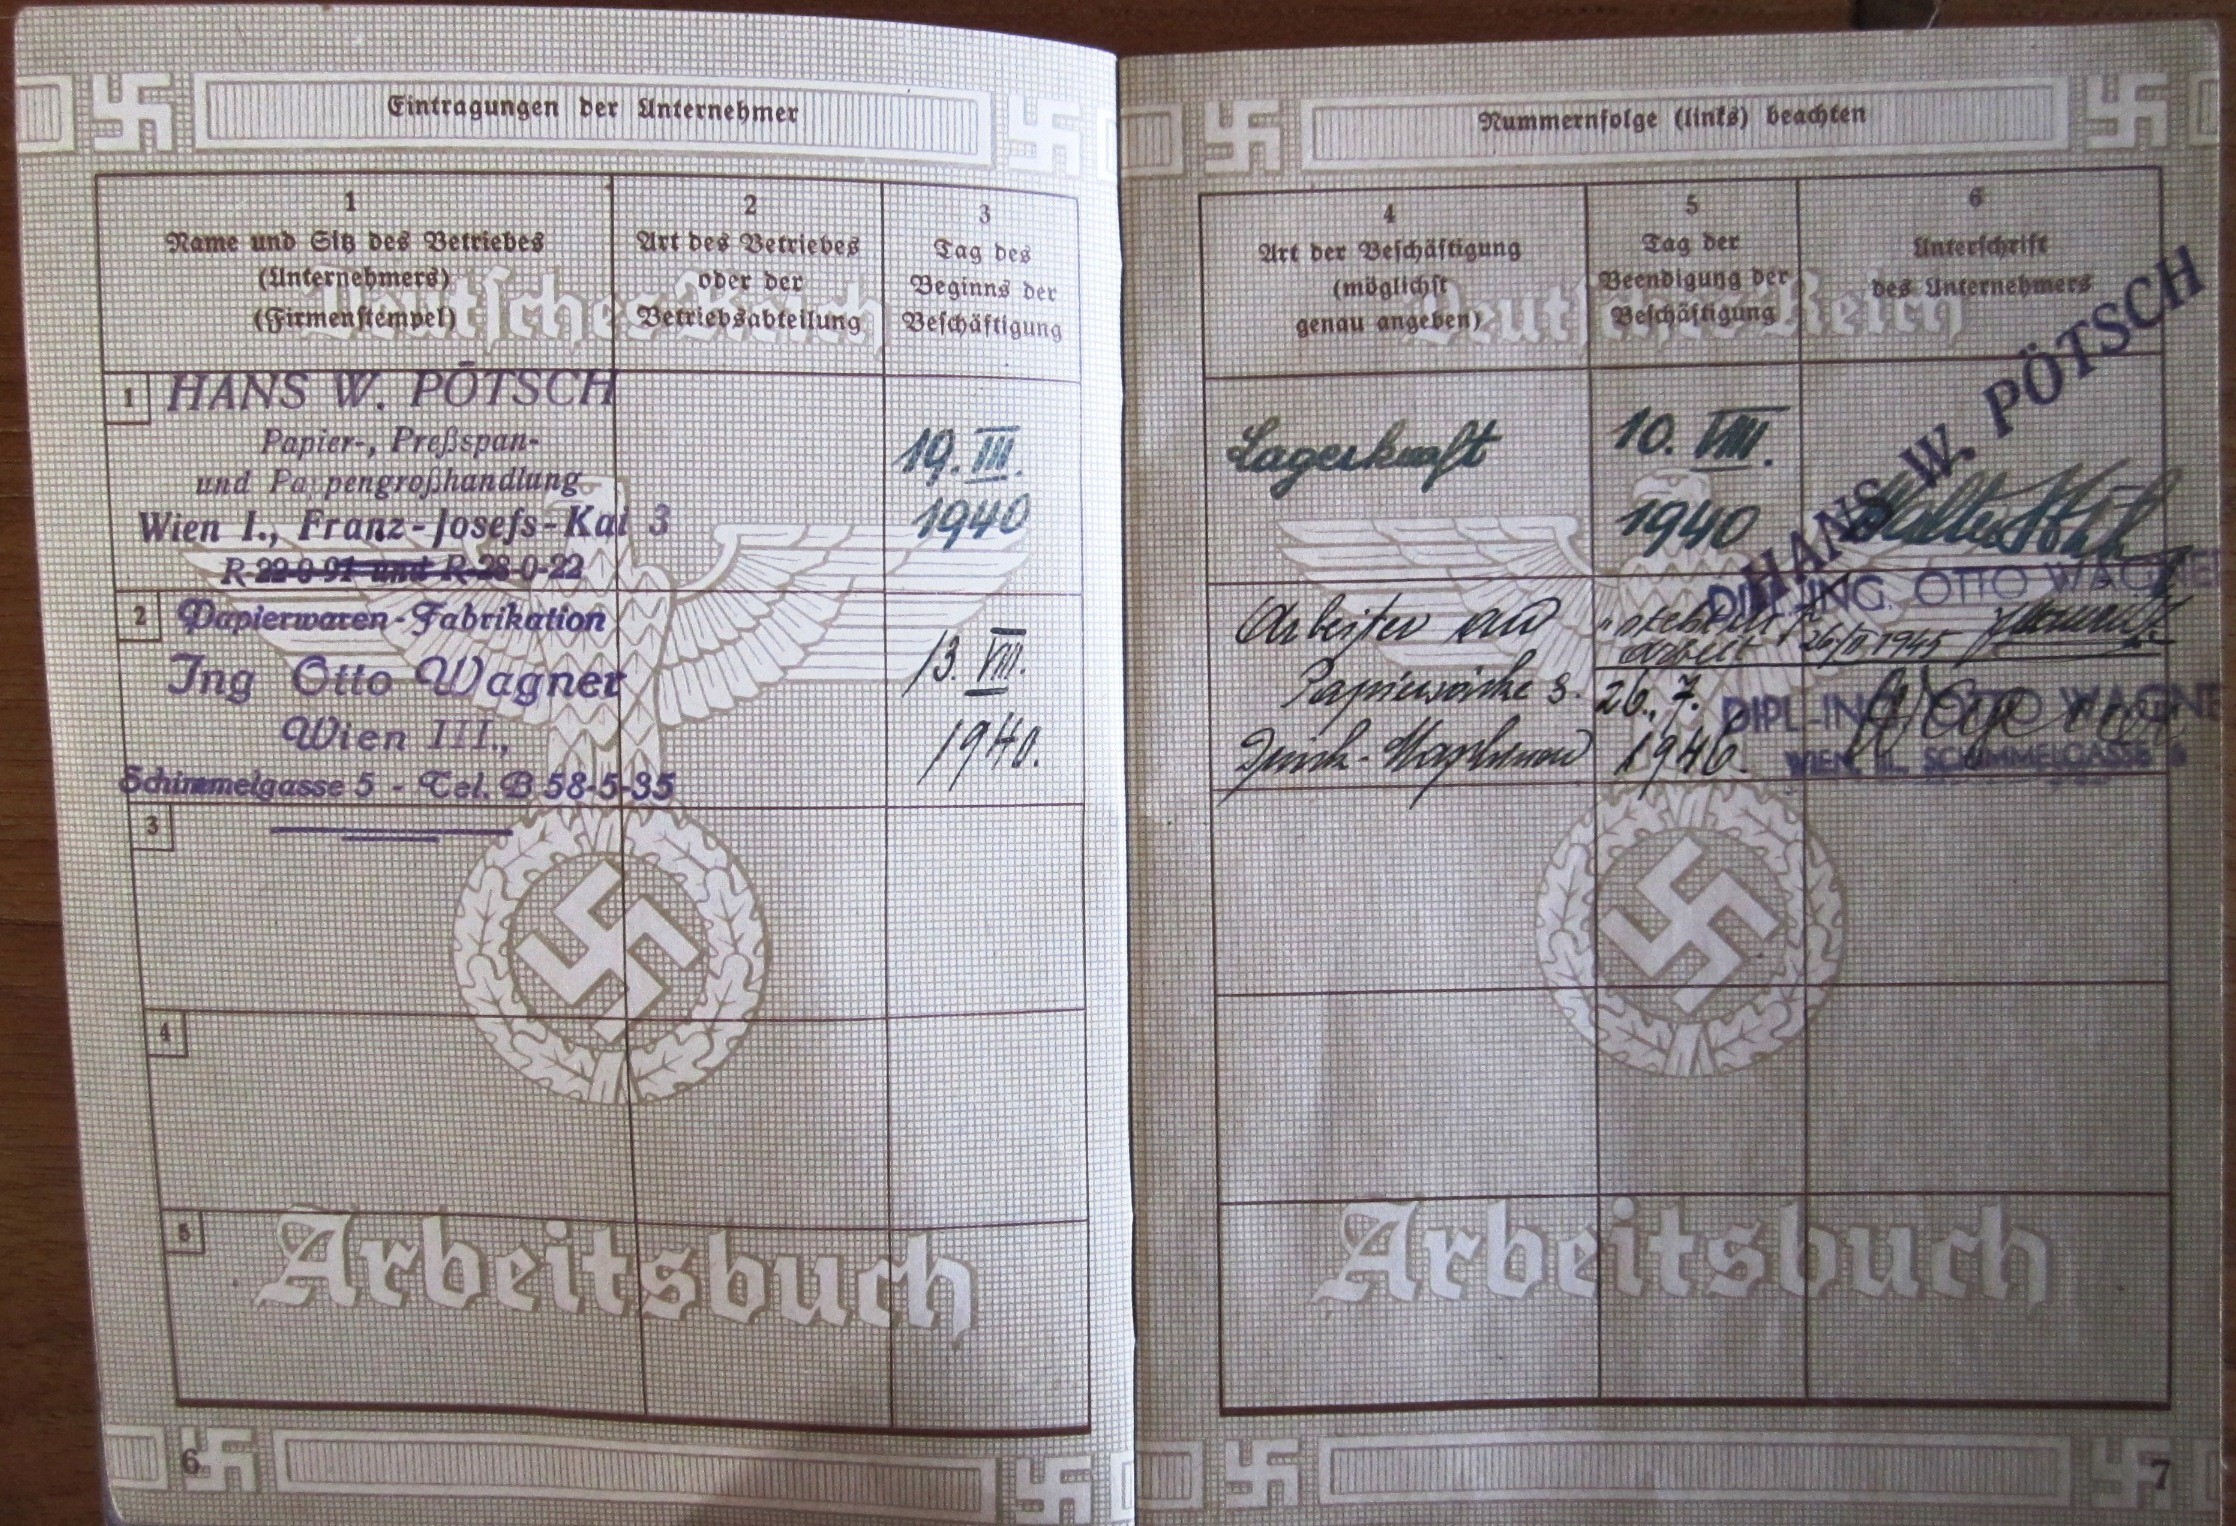 Eintragungen der Unternehmer
1
Name und Sitz des Betriebes
(Unternehmers)
(Firmenstempel)
2
Art des Betriebes
oder der
Betriebsabteilung
3
Tag des
Beginns der
Beschäftigung
Deutsches Reich
1
HANS W. PÖTSCH
Papier-, Preßspan-
und Pappengroßhandlung
Wien I., Franz-Josefs-Kai 3
R-28-0-22
19. III.
1940
2
Papierwaren-Fabrikation
Ing Otto Wagner
Wien III.,
Schimmelgasse 5 - Tel. B 58-5-35
13. VIII.
1940.
3
4
5
Arbeitsbuch
6
Nummernfolge (links) beachten
4
Art der Beschäftigung
(möglichst
genau angeben)
5
Tag der
Beendigung der
Beschäftigung
6
Unterschrift
des Unternehmers
Deutsches Reich
Lagerkraft
10. VIII.
1940
HANS W. PÖTSCH
Arbeiter an
DIPL.-ING. OTTO WAGNE
26/II 1945
26. 7.
1946.
DIPL.-ING. OTTO WAGNE
WIEN, III., SCHIMMELGASSE 5
Arbeitsbuch
7